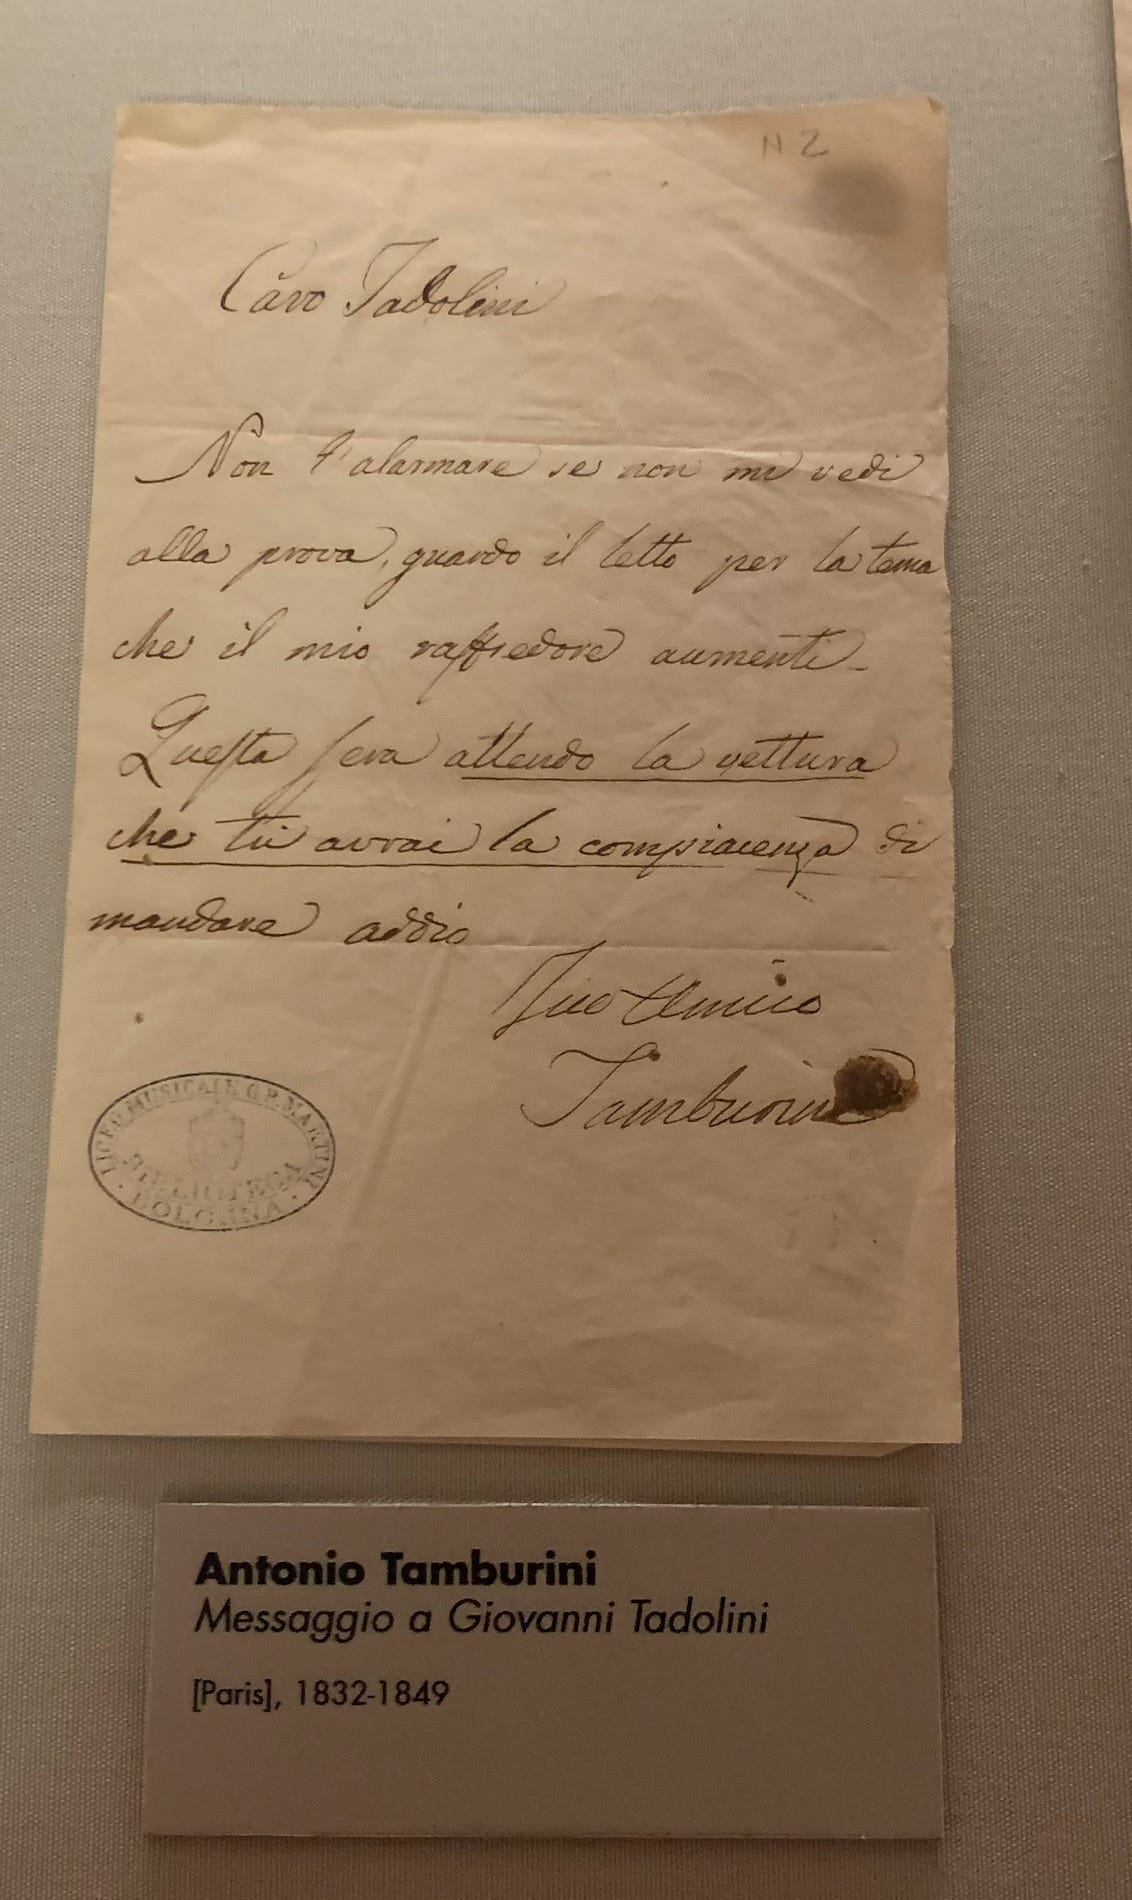 N 2
Caro Tadolini
Non t'alarmare se non mi vedi
alla prova, guardo il letto per la tema
che il mio raffredore aumenti_
Questa sera attendo la vettura
che tu avrai la compiacenza di
mandare addio
Tuo Amico
Tamburini
LICEO MUSICALE G.B. MARTINI
BIBLIOTECA
BOLOGNA
Antonio Tamburini
Messaggio a Giovanni Tadolini
[Paris], 1832-1849